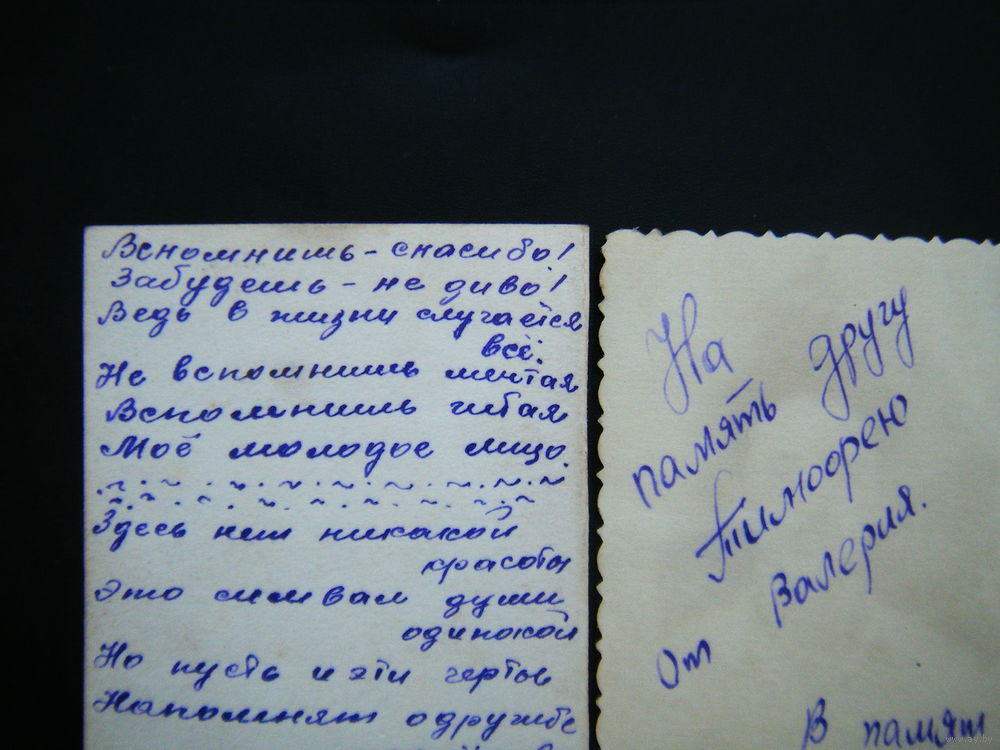 Вспомнишь - спасибо!
Забудешь - не диво!
Ведь в жизни случается
всё.
Не вспомнишь мечтая
Вспомнишь читая
Моё молодое лицо.
Здесь нет никакой
красоты
Это симвал души
одинокой
Но пусть и эти черты
Напомнят о дружбе
На
память другу
Тимофею
От Валерия.
В памят
www.ay.by